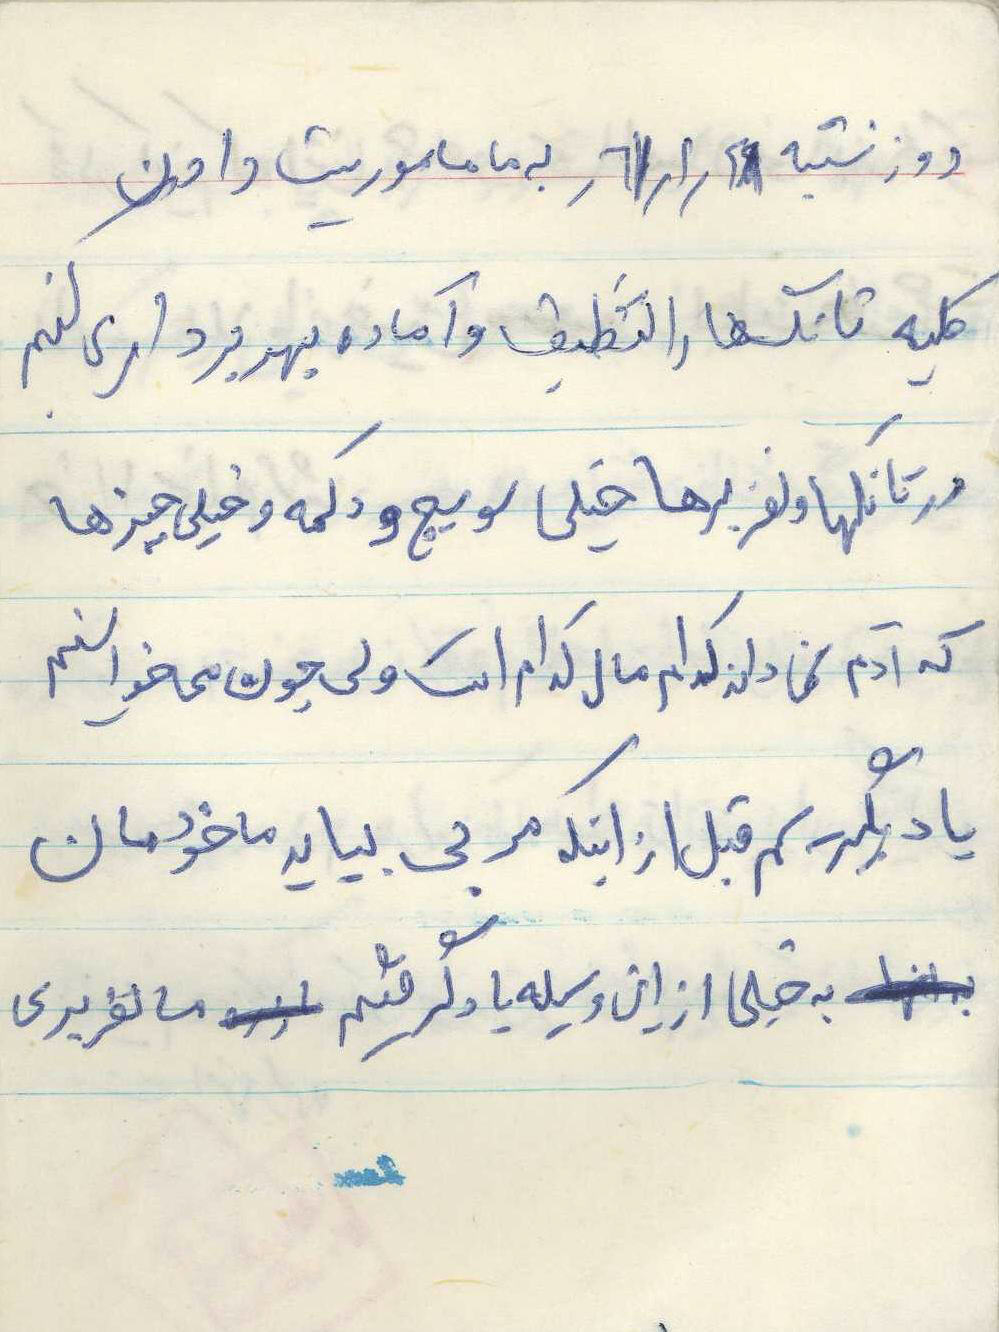 روز شنبه به ما ماموریت دادن
کلیه تانک‌ها را تنظیف و آماده بهره برداری کنیم
در تانکها و نفربرها خیلی سویچ و دکمه و خیلی چیزها
که آدم نمی داند کدام مال کدام است ولی چون می خواستیم
یاد بگیریم قبل از اینکه مربی بیاید ما خودمان
به خیلی از این وسیله یاد گرفتیم ما نفربری